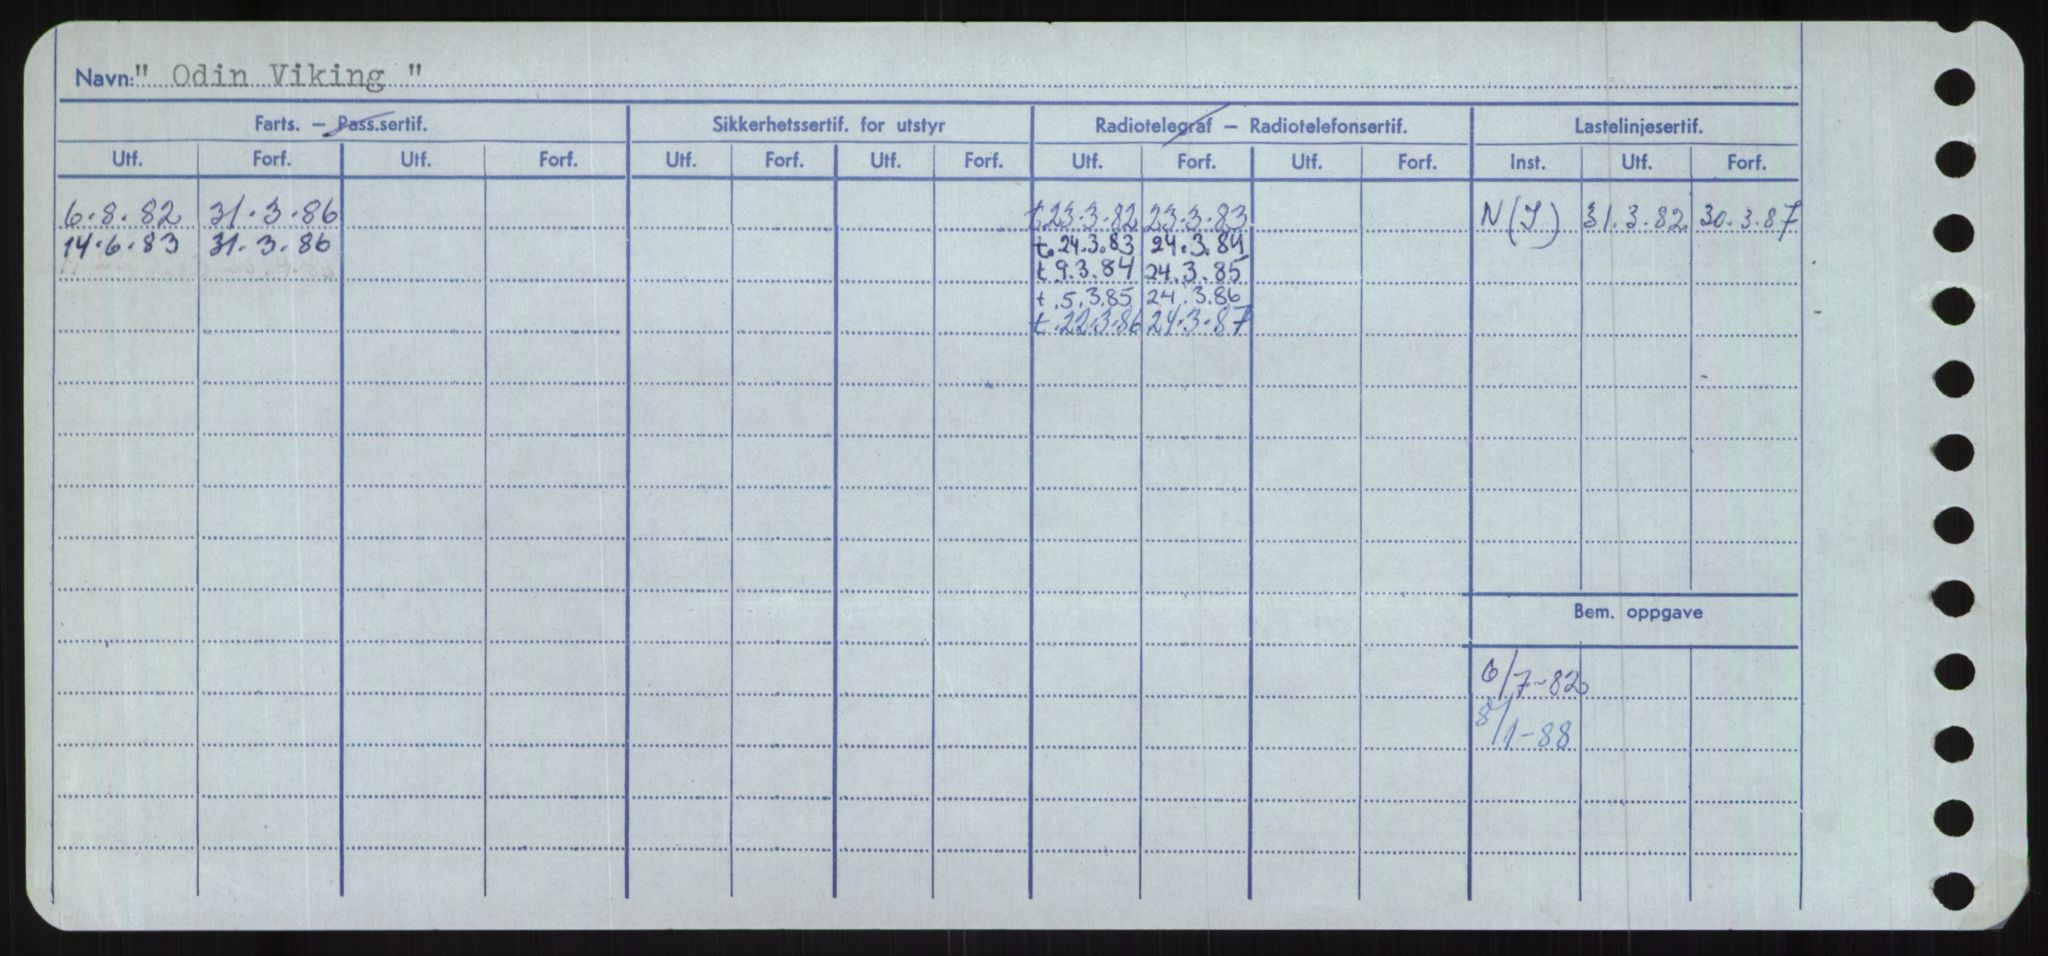 Navn: " Odin Viking "
Farts. — Pass.sertif. Sikkerhetssertif. for utstyr Radiotelegraf — Radiotelefonsertif. Lastelinjesertif.
Utf. Forf. Utf. Forf. Utf. Forf. Utf. Forf. Utf. Forf. Utf. Forf. Inst. Utf. Forf.
6.8.82 31.3.86 t.23.3.82 23.3.83 N(I) 31.3.82 30.3.87
14.6.83 31.3.86 t. 24.3.83 24.3.84
t 9.3.84 24.3.85
t .5.3.85 24.3.86
t.22.3.86 24.3.87
Bem. oppgave
6/7-82
8/1-88